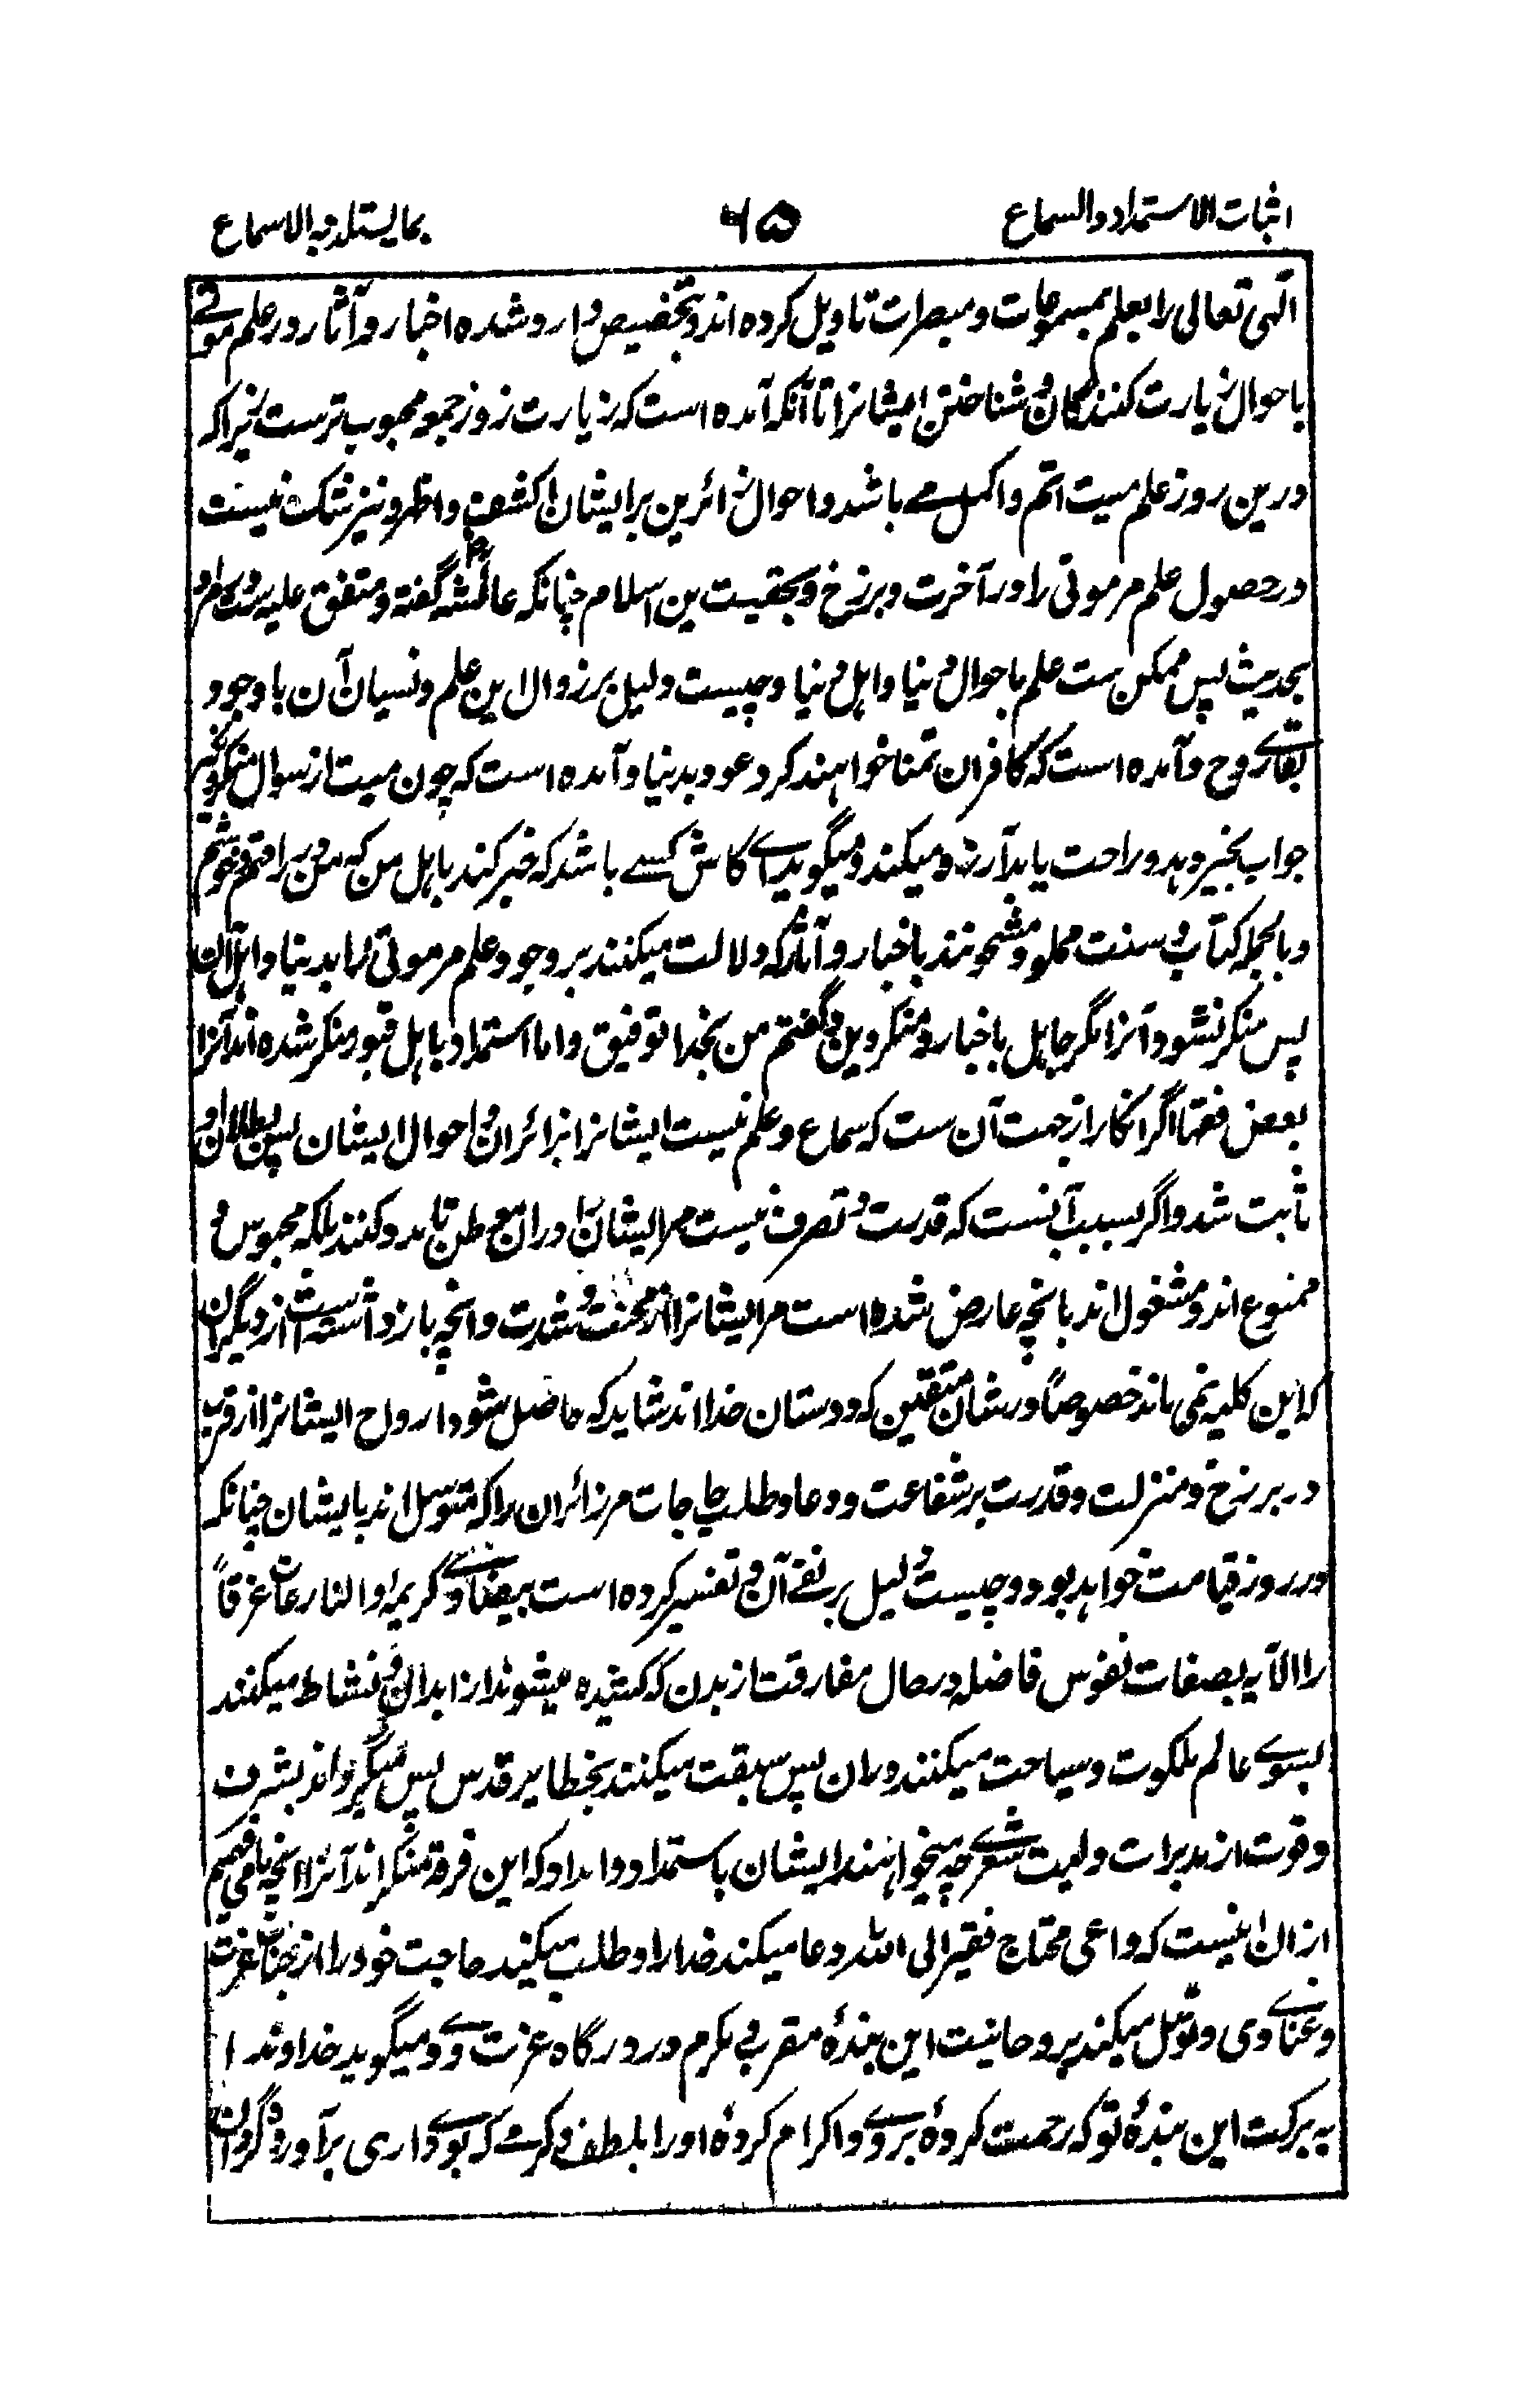 اثبات الاستمداد والسماع
۶۵
بما یستلذ به الاسماع
الٰہی تعالی را بعلم بمسموعات و مبصرات تاویل کرده اند و بتخصیص وارد شده اخبار و آثار در علم موتے
باحوال زیارت کنندگان و شناختن ایشانرا تا آنکه آمده است که زیارت روز جمعه محبوب ترست زیراکه
درین روز علم میت اتم و اکمل مے باشد و احوال زائرین بر ایشان اکشف و اظهر و نیز شک نیست
در حصول علم مر موتی را در آخرت و برزخ و بحقیت دین اسلام چنانکه عائشه گفته و متفق علیه
بحدیث پس ممکن ست علم باحوال دنیا و اہل دنیا و چیست دلیل بر زوال این علم و نسیان آن با وجود
بقاے روح و آمده است که کافران تمنا خواہند کرد عود بدنیا و آمده است که چون میت از سوال منکر و نکیر
جواب بخیر دہد و راحت یابد آرزو میکند و میگوید اے کاش کسے باشد که خبر کند باہل من که من براحتم و خوشم
و بالجمله کتاب و سنت مملو و مشحونند باخبار و آثار که دلالت میکنند بر وجود علم مر موتی را بدنیا و اہل آن
پس منکر نشود آنرا مگر جاہل باخبار و منکر دین و گفتم من بخدا توفیق و اما استمداد باہل قبور منکر شده اند آنرا
بعض فقها اگر انکار از جهت آن ست که سماع و علم نیست ایشانرا بزائران و احوال ایشان پس بطلان او
ثابت شد و اگر بسبب آنست که قدرت و تصرف نیست مر ایشان را دران موطن تا مدد کنند بلکه محبوس و
ممنوع اند و مشغول اند بانچه عارض شده است مر ایشانرا از محنت و شدت و انچه باز داشته است از دیگران
که این کلیه نمی ماند خصوصاً در شان متقین که دوستان خدا اند شاید که حاصل شود ارواح ایشانرا از قرب
در برزخ و منزلت و قدرت بر شفاعت و دعا و طلب حاجات مر زائران را که متوسل اند بایشان چنانکه
در روز قیامت خواہد بود و چیست دلیل بر نفے آن و تفسیر کرده است بیضاوے کریمہ والنازعات غرقاً
را الآیہ بصفات نفوس فاضله در حال مفارقت از بدن که کشیده میشوند از ابدان و نشاط میکنند
بسوے عالم ملکوت و سیاحت میکنند دران پس سبقت میکنند بخطایر قدس پس میگردند بشرف
و قوت از مدبرات و لیت شعرے چه میخواہند ایشان باستمداد و امداد که این فرقه منکر اند آنرا انچه ما می فهمیم
ازان اینست که داعی محتاج فقیر الی الله دعا میکند خدا را و طلب میکند حاجت خود را از جناب عزت
و غناے وی و توسل میکند بروحانیت این بندۂ مقرب و مکرم در درگاه عزت وے و میگوید خداوندا
به برکت این بندۂ تو که رحمت کردۂ بروے و اکرام کردۂ او را بلطف و کرمے که بوے داری برآورده گردان